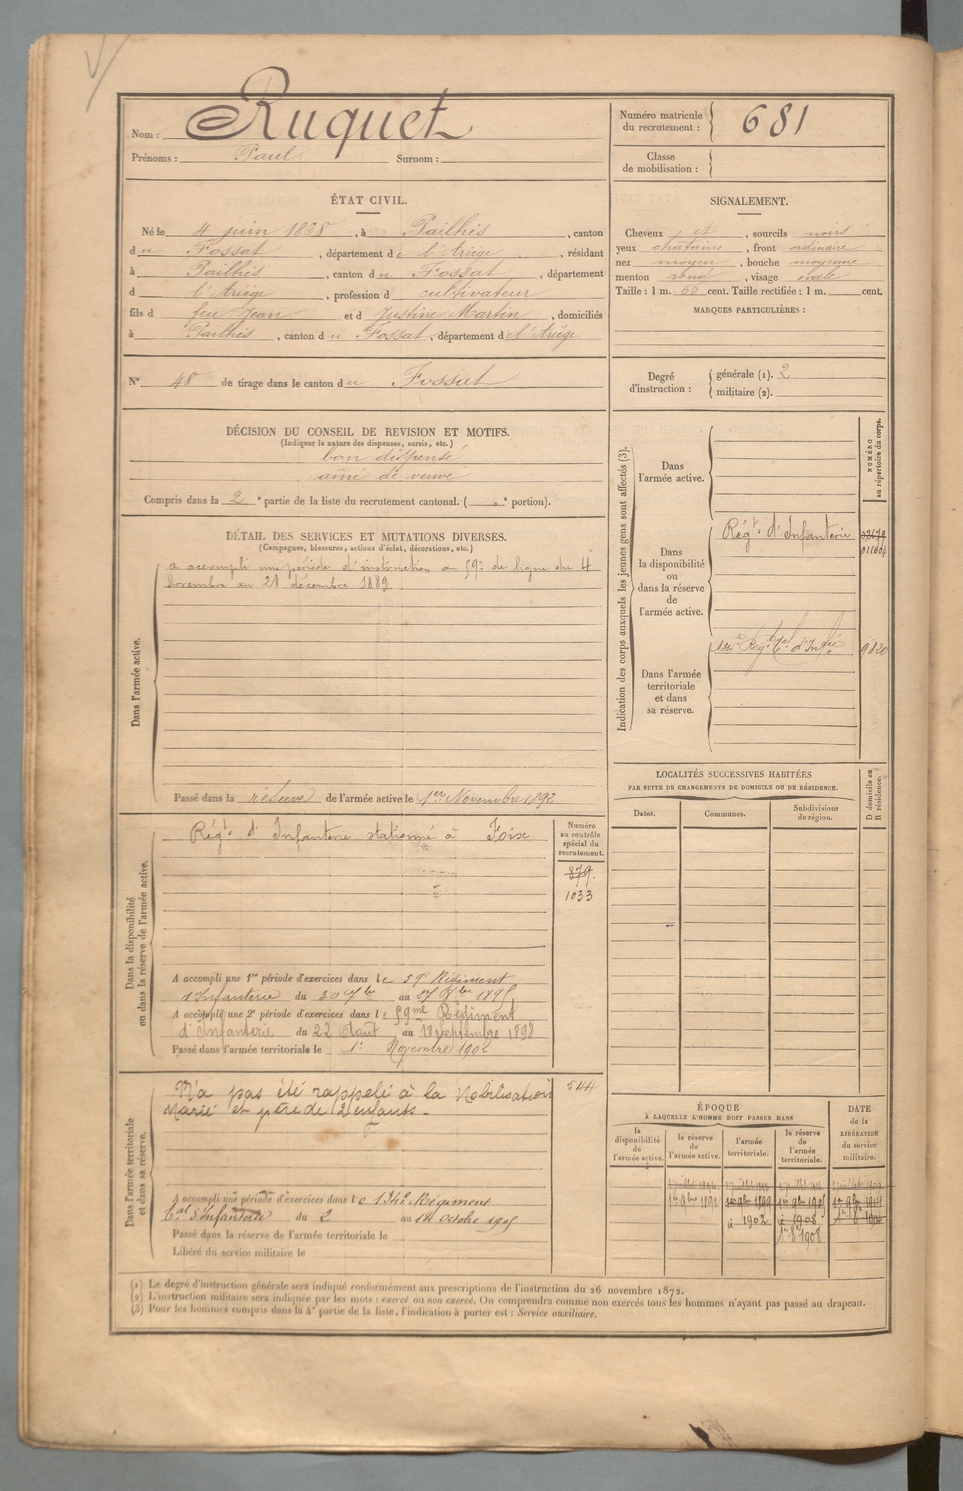 Nom : Ruquet
Prénoms : Paul Surnom :
Numéro matricule
du recrutement : 681
Classe
de mobilisation :
ÉTAT CIVIL.
Né le 4 juin 1868, à Pailhès, canton
du Fossat, département de l'Ariège, résidant
à Pailhès, canton du Fossat, département
d l'Ariège, profession d cultivateur
fils d feu Jean et d Justine Martin, domiciliés
à Pailhès, canton du Fossat, département d el'Ariège
N° 48 de tirage dans le canton du Fossat
SIGNALEMENT.
Cheveux et, sourcils noirs
yeux chatains, front ordinaire
nez moyen, bouche moyenne
menton rond, visage ovale
Taille : 1 m. 66 cent. Taille rectifiée : 1 m. cent.
MARQUES PARTICULIÈRES :
Degré
d'instruction :
générale (1). 2
militaire (2).
DÉCISION DU CONSEIL DE REVISION ET MOTIFS.
(Indiquer la nature des dispenses, sursis, etc.)
bon dispensé
aîné de veuve
Compris dans la 2e partie de la liste du recrutement cantonal. ( e portion).
DÉTAIL DES SERVICES ET MUTATIONS DIVERSES.
(Campagnes, blessures, actions d'éclat, décorations, etc.)
Dans l'armée active.
a accompli une période d'instruction au 59e de ligne du 4
Novembre au 21 décembre 1889.
Passé dans la réserve de l'armée active le 1er Novembre 1892
Dans la disponibilité
ou dans la réserve de l'armée active.
Régt d'Infanterie stationné à Foix
Numéro
au contrôle
spécial du
recrutement.
879.
1033
A accompli une 1re période d'exercices dans le 59e Régiment
d'Infanterie du 30 au 1895
A accompli une 2e période d'exercices dans le 59me Régiment
d'Infanterie du 22 Août au 18 septembre 1898
Passé dans l'armée territoriale le 1er Novembre 1902
Dans l'armée territoriale
et dans sa réserve.
N'a pas été rappelé à la Mobilisation
Marié et père de 2 enfants.
544
A accompli une période d'exercices dans le 134e Régiment
d'Infanterie du 2 au 14 Octobre 1905
Passé dans la réserve de l'armée territoriale le
Libéré du service militaire le
Indication des corps auxquels les jeunes gens sont affectés (3).
NUMÉRO
au répertoire du corps.
Dans
l'armée active.
Dans
la disponibilité
ou
dans la réserve
de
l'armée active.
Régt d'Infanterie
011604
Dans l'armée
territoriale
et dans
sa réserve.
134e Régt d'Infie
9820
LOCALITÉS SUCCESSIVES HABITÉES
PAR SUITE DE CHANGEMENTS DE DOMICILE OU DE RÉSIDENCE.
D domicile ou
R résidence.
Dates.
Communes.
Subdivisions
de région.
ÉPOQUE
À LAQUELLE L'HOMME DOIT PASSER DANS
DATE
de la
LIBÉRATION
du service
militaire.
la
disponibilité
de
l'armée active.
la réserve
de
l'armée active.
l'armée
territoriale.
la réserve
de
l'armée
territoriale.
1er 9bre 1892 1er 9bre 1899 1er 9bre 1905
1902 1908
1908
(1) Le degré d'instruction générale sera indiqué conformément aux prescriptions de l'instruction du 26 novembre 1872.
(2) L'instruction militaire sera indiquée par les mots : exercé ou non exercé. On comprendra comme non exercés tous les hommes n'ayant pas passé au drapeau.
(3) Pour les hommes compris dans la 4e partie de la liste, l'indication à porter est : Service auxiliaire.